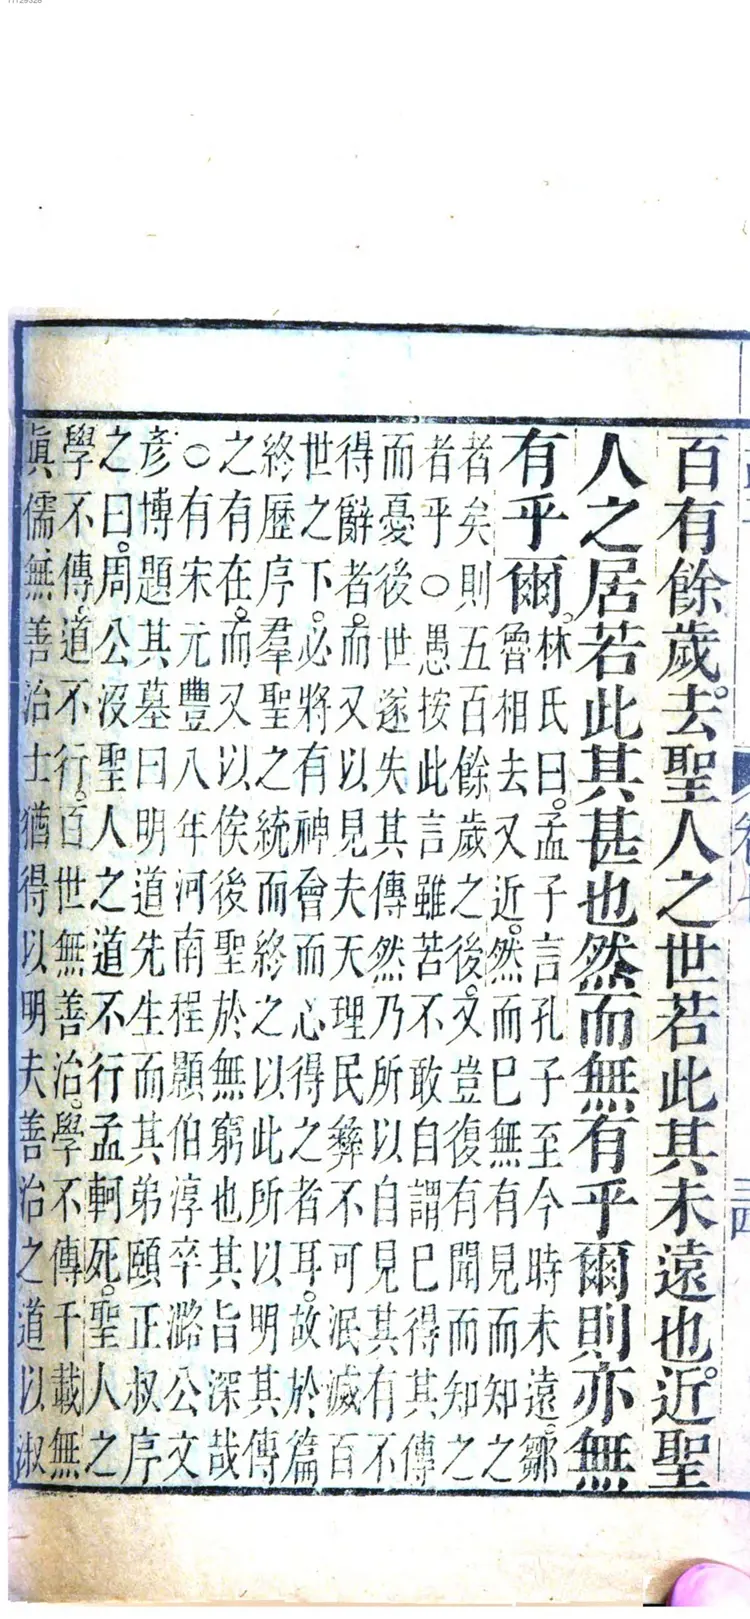 百有餘歲去聖人之世若此其未遠也近聖
人之居若此其甚也然而無有乎爾則亦無
有乎爾
林氏曰孟子言孔子至今時未遠鄒
魯相去又近然而已無有見而知之
者矣則五百餘歲之後又豈復有聞而知之
者乎○愚按此言雖若不敢自謂已得其傳
而憂後世遂失其傳然乃所以自見其有不
得辭者而又以見夫天理民彝不可泯滅百
世之下必將有神會而心得之者耳故於篇
終歷序羣聖之統而終之以此所以明其傳
之有在而又以俟後聖於無窮也其旨深哉
○有宋元豐八年河南程顥伯淳卒潞公文
彥博題其墓曰明道先生而其弟頤正叔序
之曰周公沒聖人之道不行孟軻死聖人之
學不傳道不行百世無善治學不傳千載無
眞儒無善治士猶得以明夫善治之道以淑